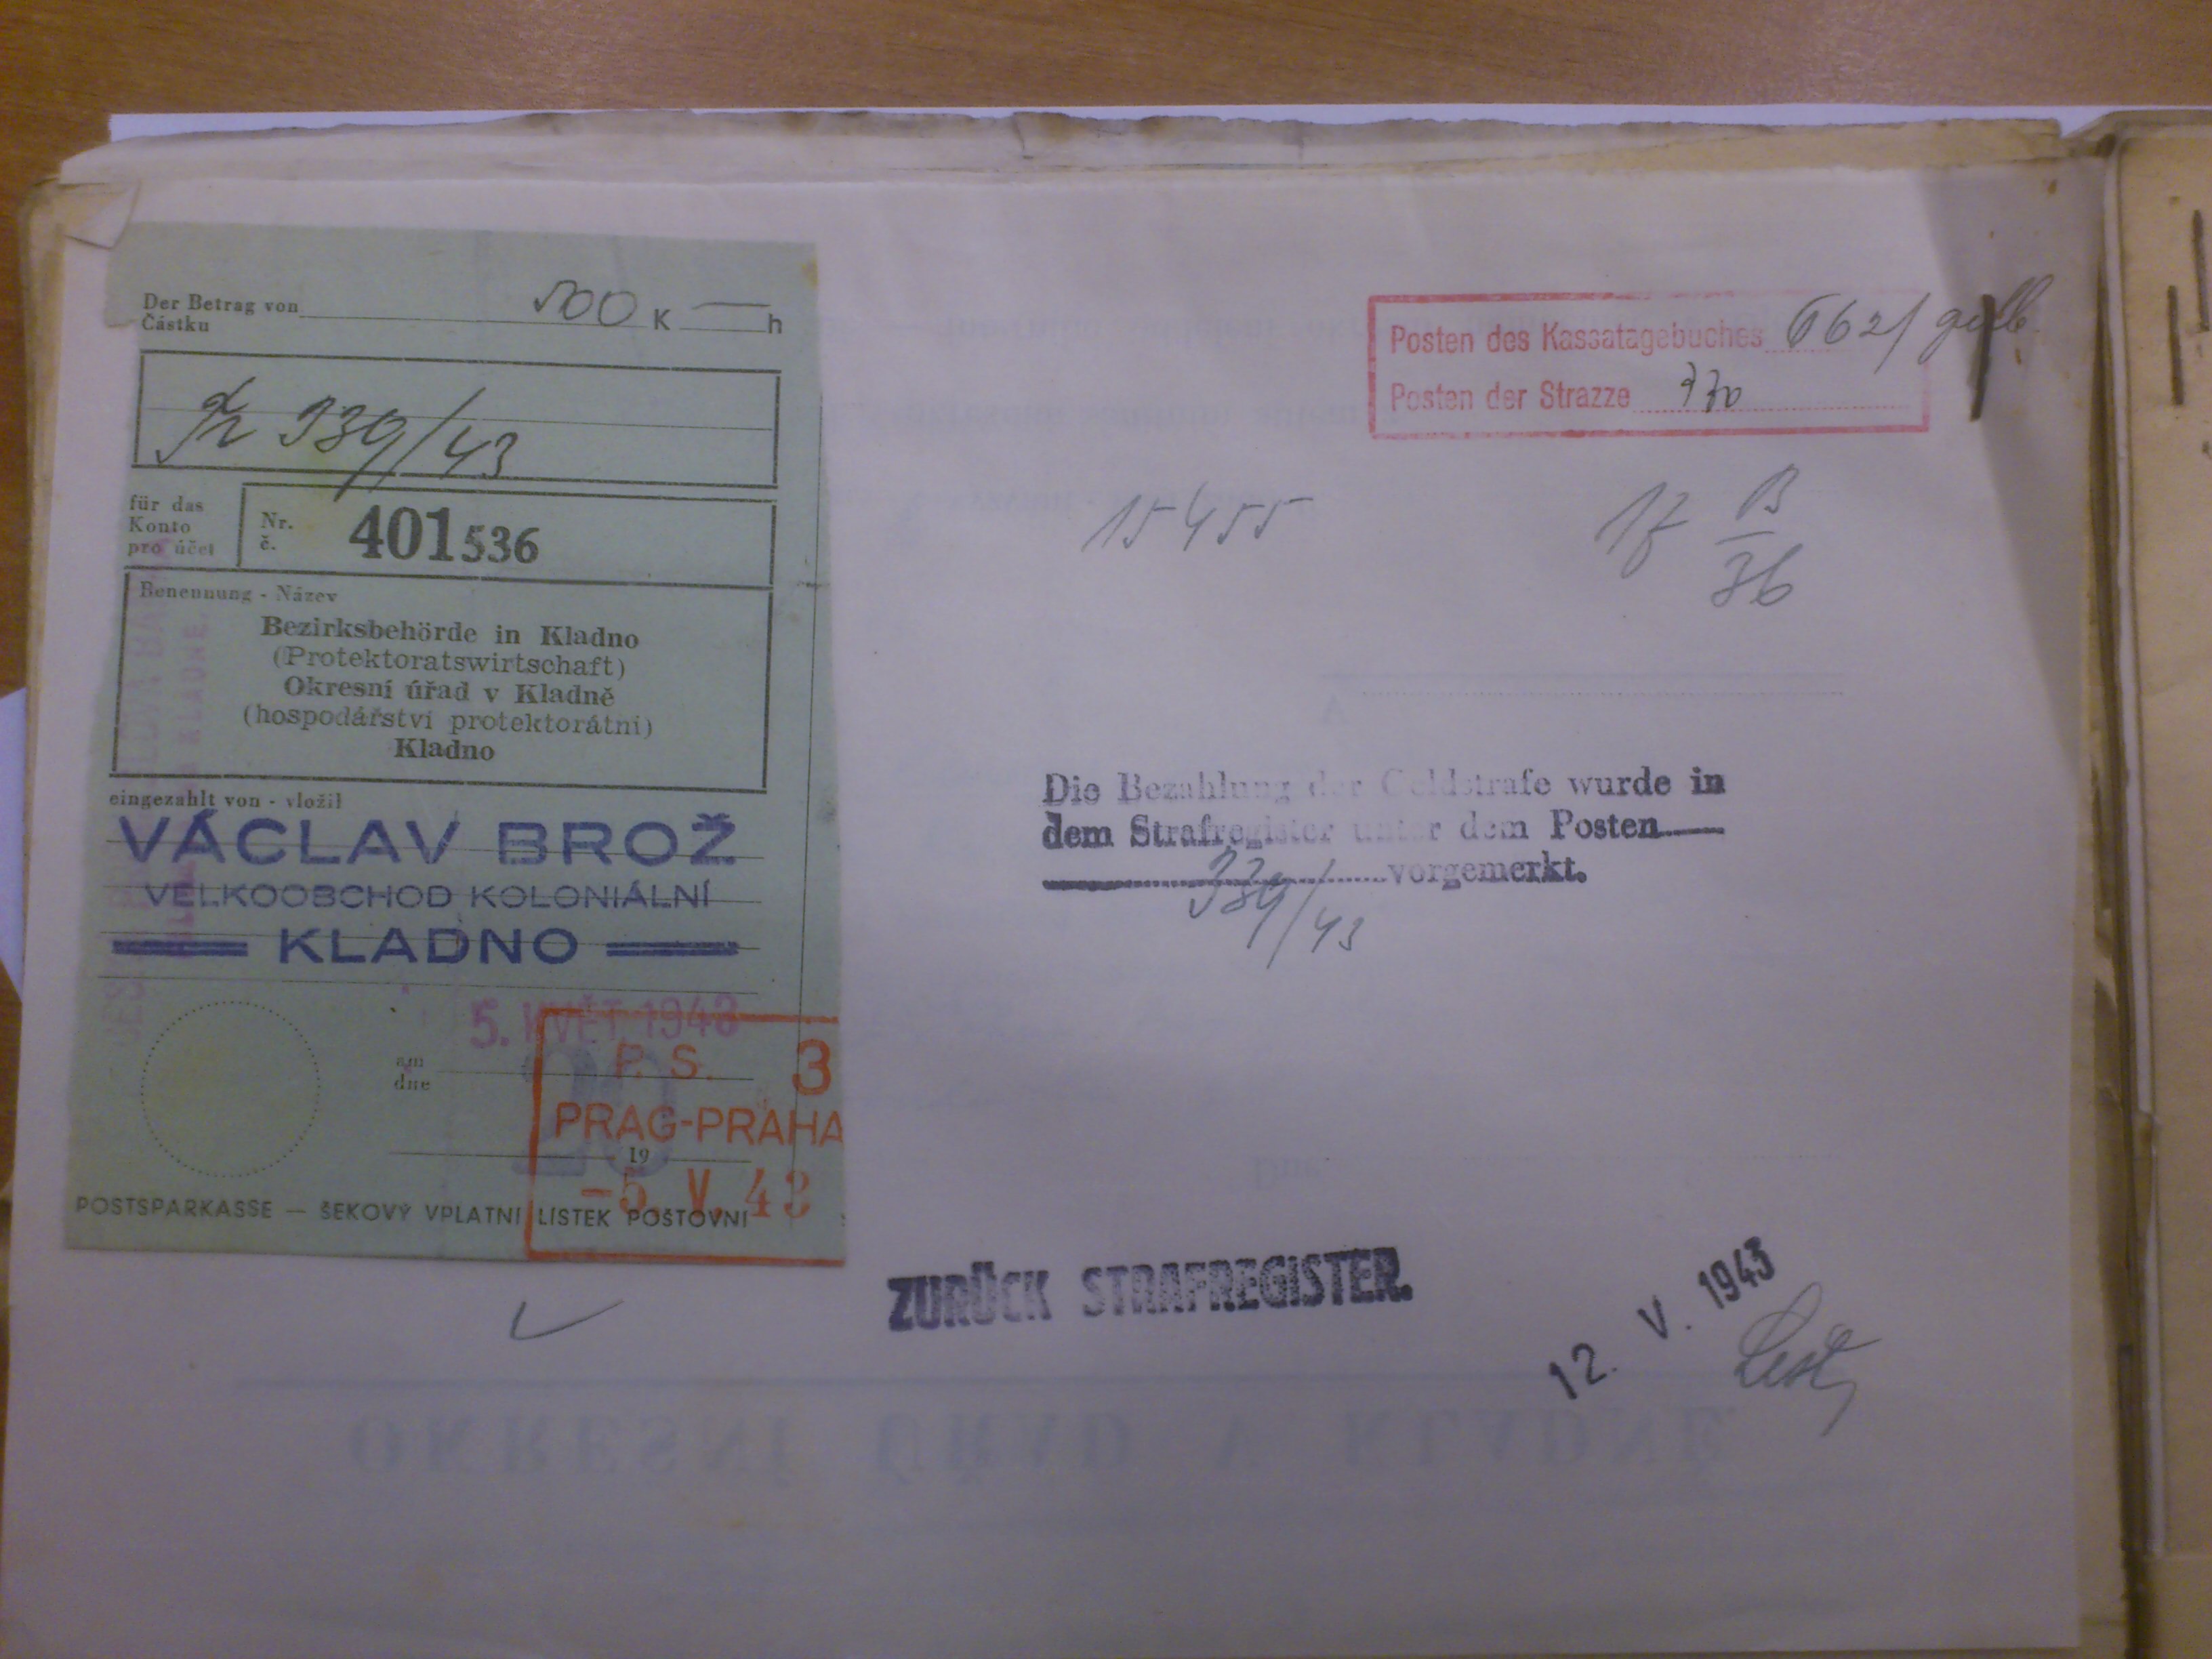 Der Betrag von 500 K — h
Částku
339/43
für das
Konto
pro účet
Nr.
č.
401536
Benennung - Název
Bezirksbehörde in Kladno
(Protektoratswirtschaft)
Okresní úřad v Kladně
(hospodářství protektorátní)
Kladno
eingezahlt von - vložil
VÁCLAV BROŽ
VELKOOBCHOD KOLONIÁLNÍ
KLADNO
5. KVĚT. 1943
P. S. 3
am
dne
20
PRAG-PRAHA
19
-5. V. 43
POSTSPARKASSE — ŠEKOVÝ VPLATNÍ LÍSTEK POŠTOVNÍ
Posten des Kassatagebuches 662/
Posten der Strazze 770
15455
Die Bezahlung der Geldstrafe wurde in
dem Strafregister unter dem Posten
339/43 vorgemerkt.
ZURÜCK STRAFREGISTER.
12. V. 1943
OKRESNÍ ÚŘAD V KLADNĚ